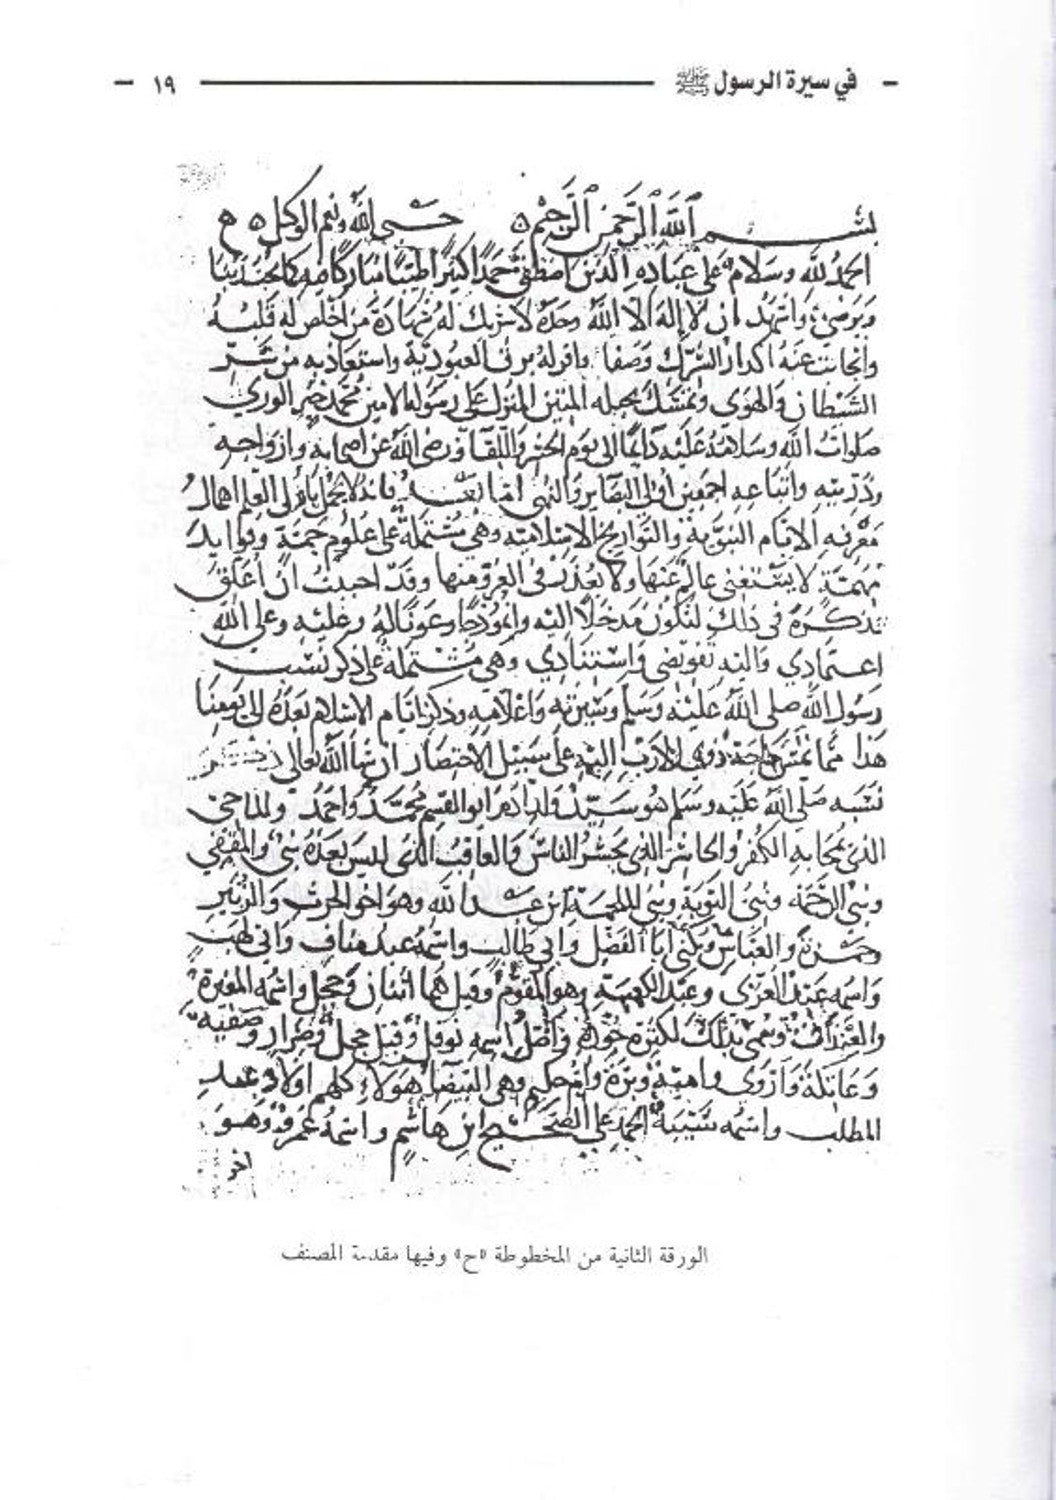 في سيرة الرسول ﷺ ١٩
بسم الله الرحمن الرحيم ٥ حسبي الله ونعم الوكيل ٥ ٥
الحمد لله وسلام على عباده الذين اصطفى حمدا كثيرا طيبا مباركا فيه كما يحب ربنا
ويرضى واشهد ان لا اله الا الله وحده لا شريك له شهادة من اخلص له قلبه
وانجابت عنه اكدار الشرك وصفا واقر له برق العبودية واستعاذ به من شر
الشيطان والهوى وتمسك بحبله المتين المنزل على رسوله الامين محمد خير الورى
صلوات الله وسلامه عليه دائما الى يوم الحشر واللقا ورضي الله عن اصحابه وازواجه
وذريته واتباعه اجمعين اولى البصاير والنهى اما بعد فانه لا يجمل باولى العلم اهمال
معرفة الايام النبوية والتواريخ الاسلامية وهي مشتملة على علوم جمة وفوايد
مهمة لا يستغنى عالم عنها ولا يعذر في العرو منها وقد احببت ان اعلق
تذكرة في ذلك لتكون مدخلا اليه وانموذجا وعونا له وعليه وعلى الله
اعتمادي واليه تفويضي واستنادي وهي مشتملة على ذكر نسب
رسول الله صلى الله عليه وسلم وسيرته واعلامه وذكر ايام الاسلام بعده الى يومنا
هذا مما تمس حاجة ذوى الارب اليه على سبيل الاختصار ان شا الله تعالى ذكر
نسبه صلى الله عليه وسلم هو سيد ولد ادم ابو القسم محمد واحمد والماحي
الذي يمحا به الكفر والحاشر الذي يحشر الناس والعاقب الذي ليس بعده نبي والمقفي
ونبي الرحمة ونبي التوبة ونبي الملحمة ابن عبد الله وهو اخو الحرث والزبير
وحمزة والعباس ويكنى ابا الفضل وابى طالب واسمه عبد مناف وابى لهب
واسمه عبد العزى وعبد الكعبة وهو المقوم وقيل هما اثنان وحجل واسمه المغيرة
والغيداق وسمى بذلك لكثرة جوده واصل اسمه نوفل وقيل حجل وضرار وصفيه
وعاتكة واروى واميمة وبرة وام حكيم وهي البيضا هولاء كلهم اولاد عبد
المطلب واسمه شيبة الحمد على الصحيح ابن هاشم واسمه عمرو وهو
اخو
الورقة الثانية من المخطوطة «ح» وفيها مقدمة المصنف